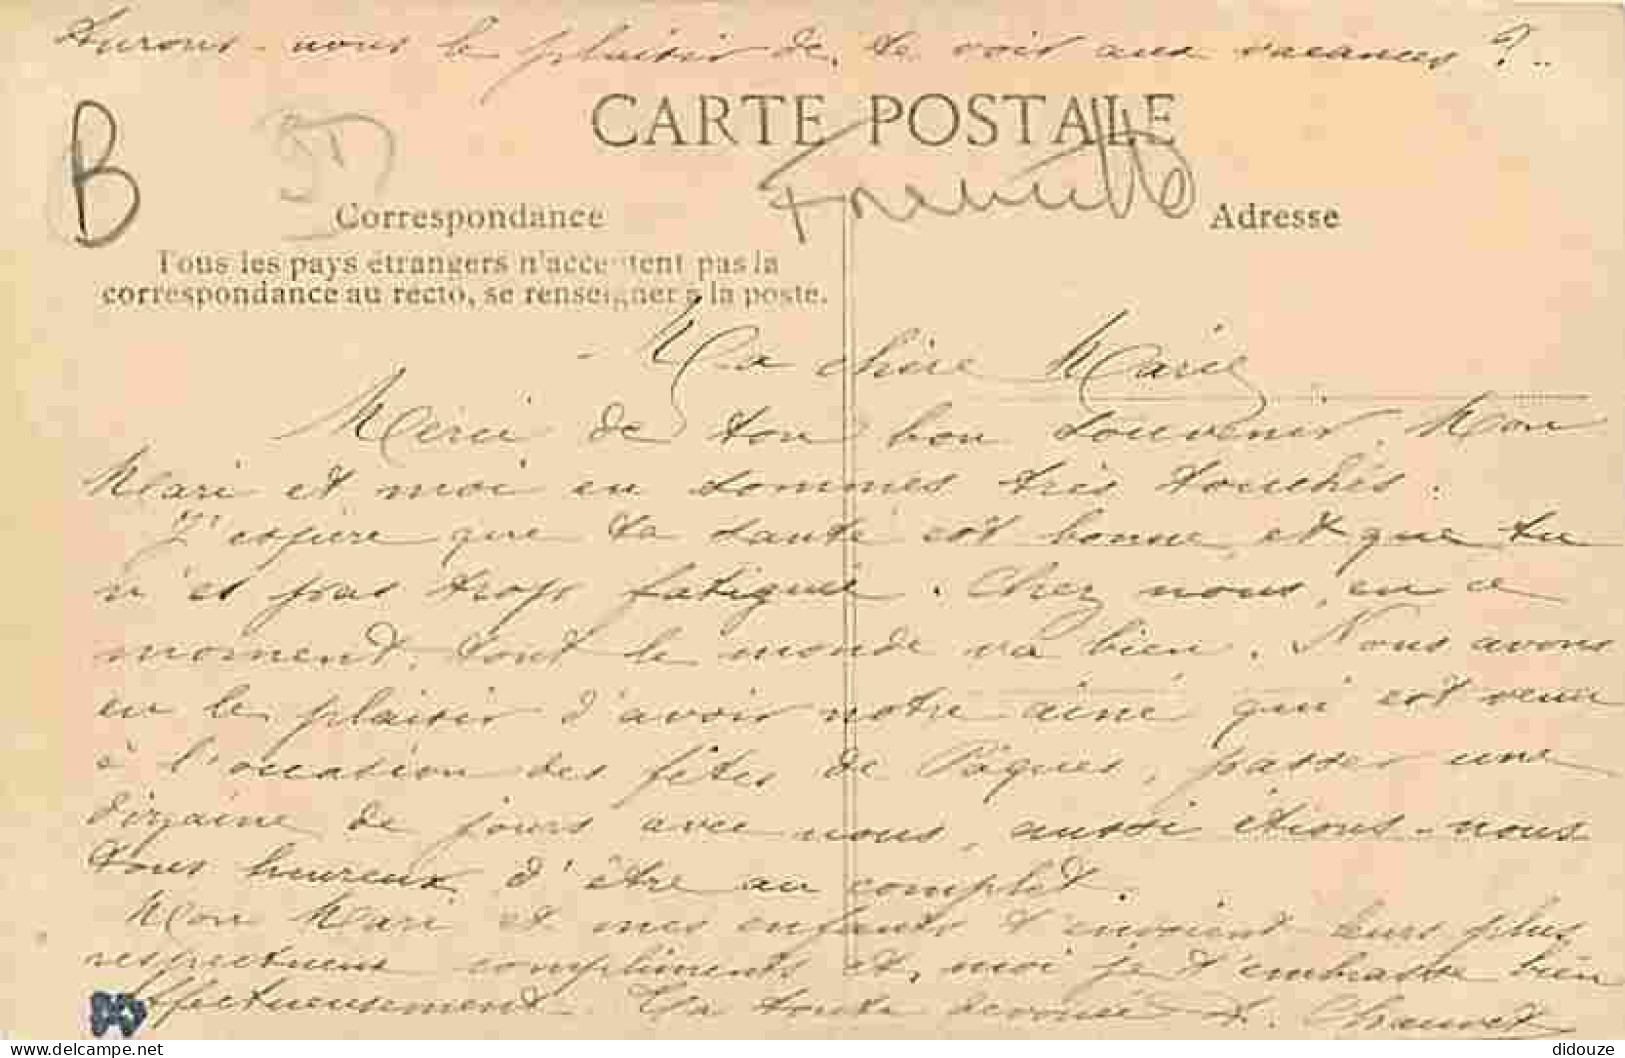 Aurons-nous le plaisir de te voir aux vacances ?..
CARTE POSTALE
B
Correspondance
Adresse
Tous les pays étrangers n'acceptent pas la
correspondance au recto, se renseigner à la poste.
Ma chère Marie
Merci de ton bon souvenir. Mon
Mari et moi en sommes très touchés.
J'espère que ta santé est bonne, et que tu
n'es pas trop fatiguée. Chez nous, en ce
moment, tout le monde va bien. Nous avons
eu le plaisir d'avoir notre ainé qui est venu
à l'occasion des fêtes de Pâques, passer une
dizaine de jours avec nous, aussi étions-nous
tous heureux d'être au complet.
Mon Mari et mes enfants t'envoient leurs plus
respectueux compliments et, moi je t'embrasse bien
affectueusement. Ta toute dévouée A. Chauvet
didouze